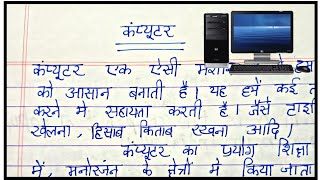 कंप्यूटर
कंप्यूटर एक ऐसी
को आसान बनाती है। यह हमें कई
करने मे सहायता करती है। जैसे
खेलना, हिसाब किताब रखना आदि।
कंप्यूटर का प्रयोग शिक्षा
में, मनोरंजन के क्षेत्रों में किया जाता